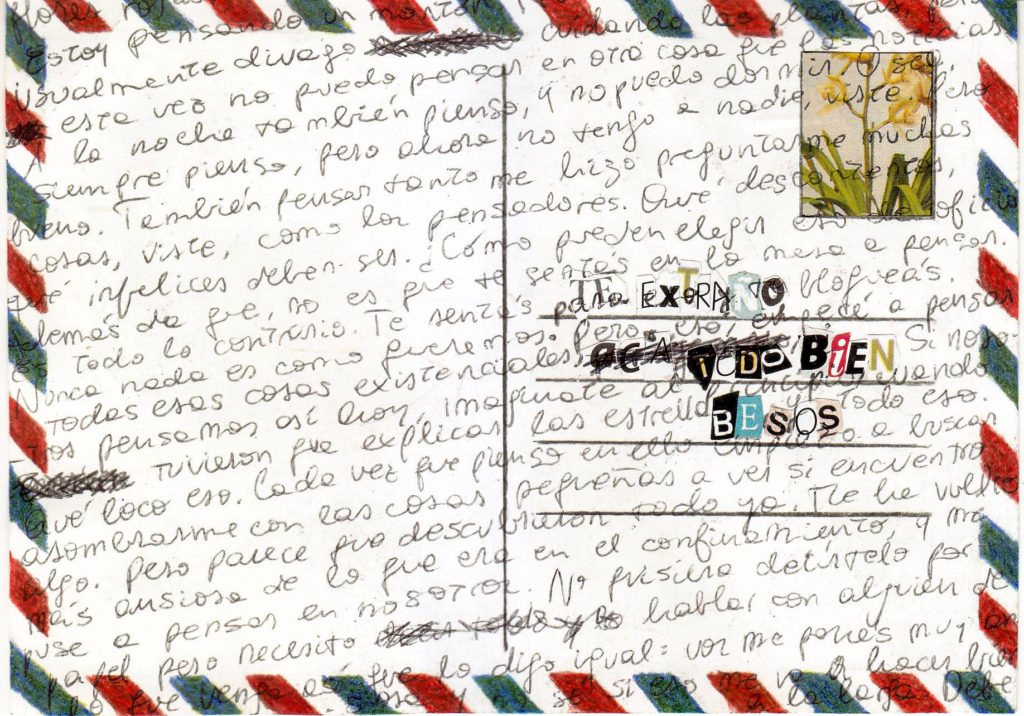 flores rosa
estoy pensando un montón cuidando las plantas, pero
usualmente divago en otra cosa que las noticias
esta vez no puedo pensar y no puedo dormir. O sea,
A la noche también pienso, a nadie, viste. Pero
siempre pienso, pero ahora no tengo muchas
bueno. También pensar tanto me hizo preguntarme
cosas, viste, como los pensadores. Que descontentos,
qué infelices deben ser. ¡Cómo pueden elegir eso de oficio
además de que, no es que te sentás en la mesa a pensar.
es todo lo contrario. Te sentás para blogueás.
Nunca nada es como queremos. Pero eso, empecé a pensar
todas esas cosas existenciales, Si noso
tros pensamos así hoy, imaginate al principio cuando
tuvieron que explicar las estrellas y todo eso.
Qué loco eso. Cada vez que pienso en ello empiezo a buscar
asombrarme con las cosas pequeñas a ver si encuentro
algo. Pero parece que descubrieron todo ya. Me he vuelto
más ansiosa de lo que era en el confinamiento, y me
puse a pensar en nosotros. No quisiera decírtelo por
papel pero necesito hablar con alguien de
lo que venga así que lo digo igual: vos me ponés muy an
siosa y no sé si eso me va a hacer bien
a la larga. Debe
TE EXTRAÑO
ACÁ TODO BIEN
BESOS